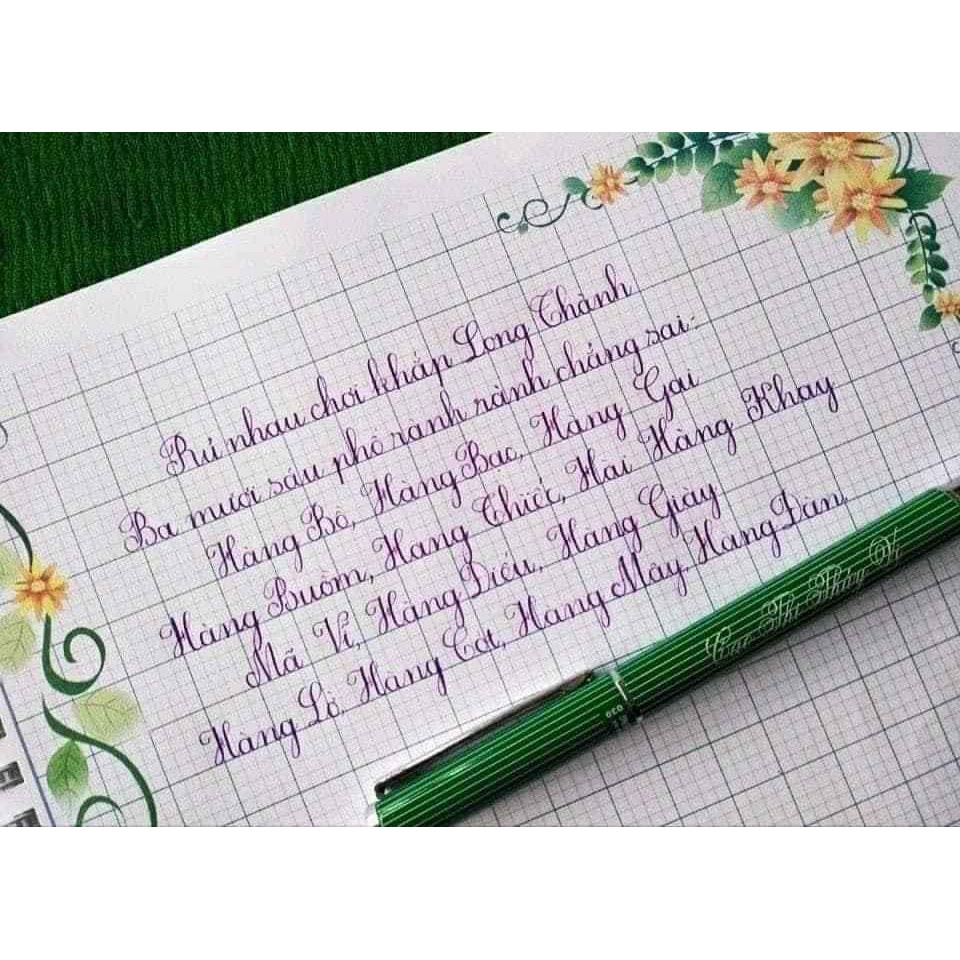 Rủ nhau chơi khắp Long Thành
Ba mươi sáu phố rành rành chẳng sai:
Hàng Bồ, Hàng Bạc, Hàng Gai
Hàng Buồm, Hàng Thiếc, Hài Hàng Khay
Mã Vĩ, Hàng Điếu, Hàng Giày
Hàng Lờ, Hàng Cót, Hàng Mây, Hàng Đàn
Thị Thúy Vi